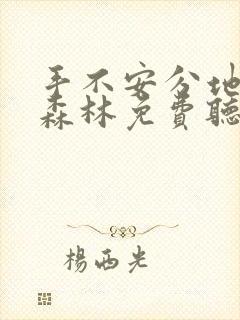 手不安分地
森林免费聽
楊西光